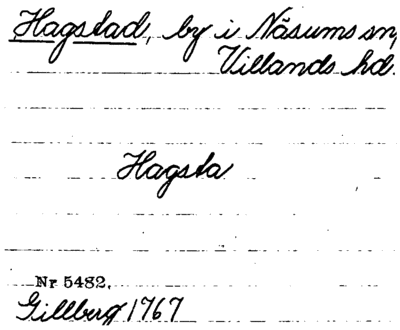 Hagstad, by i Näsums sn,
Villands hd.
Hagsta
Nr 5482.
Gillberg 1767